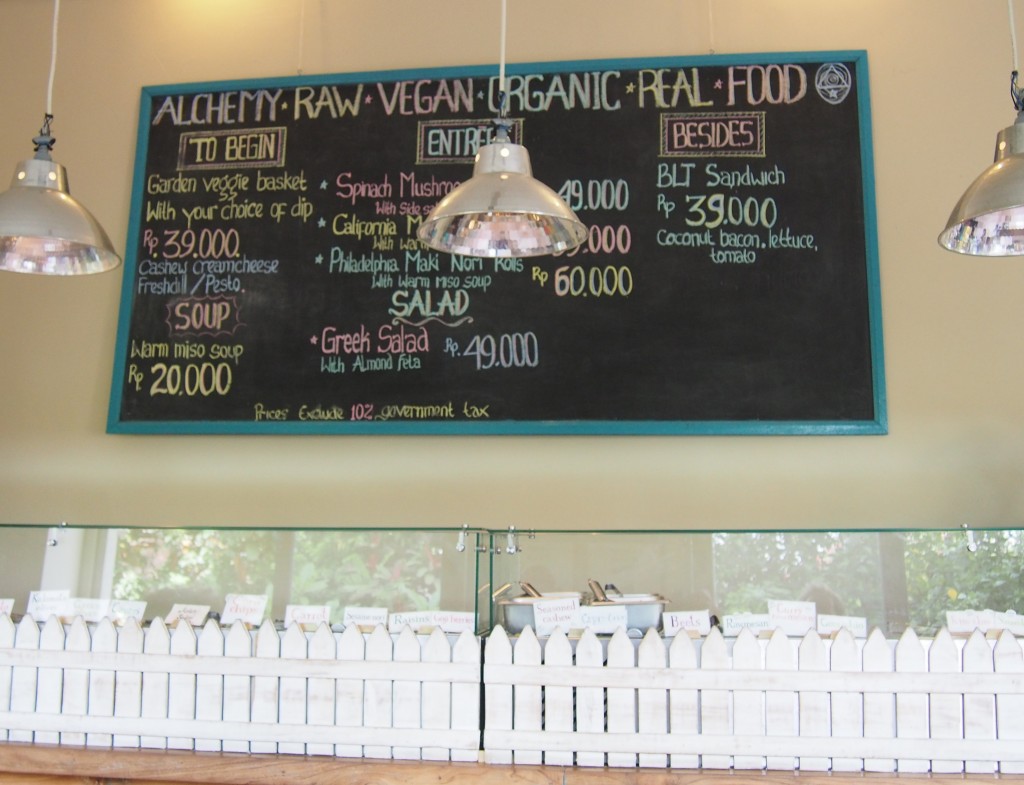 ALCHEMY * RAW * VEGAN * ORGANIC * REAL * FOOD
TO BEGIN
Garden veggie basket
With your choice of dip
Rp. 39.000.
Cashew Creamcheese
Freshdill / Pesto.
SOUP
Warm miso soup
Rp 20.000
* Spinach 49.000
With Side
* California
With
* Philadelphia Maki Nori Rolls
With Warm Miso soup Rp 60.000
SALAD
* Greek Salad Rp. 49.000
With Almond feta
BESIDES
BLT Sandwich
Rp 39.000
Coconut bacon. lettuce,
tomato
Prices Exclude 10% government tax
Seasoned
cashew
Beets